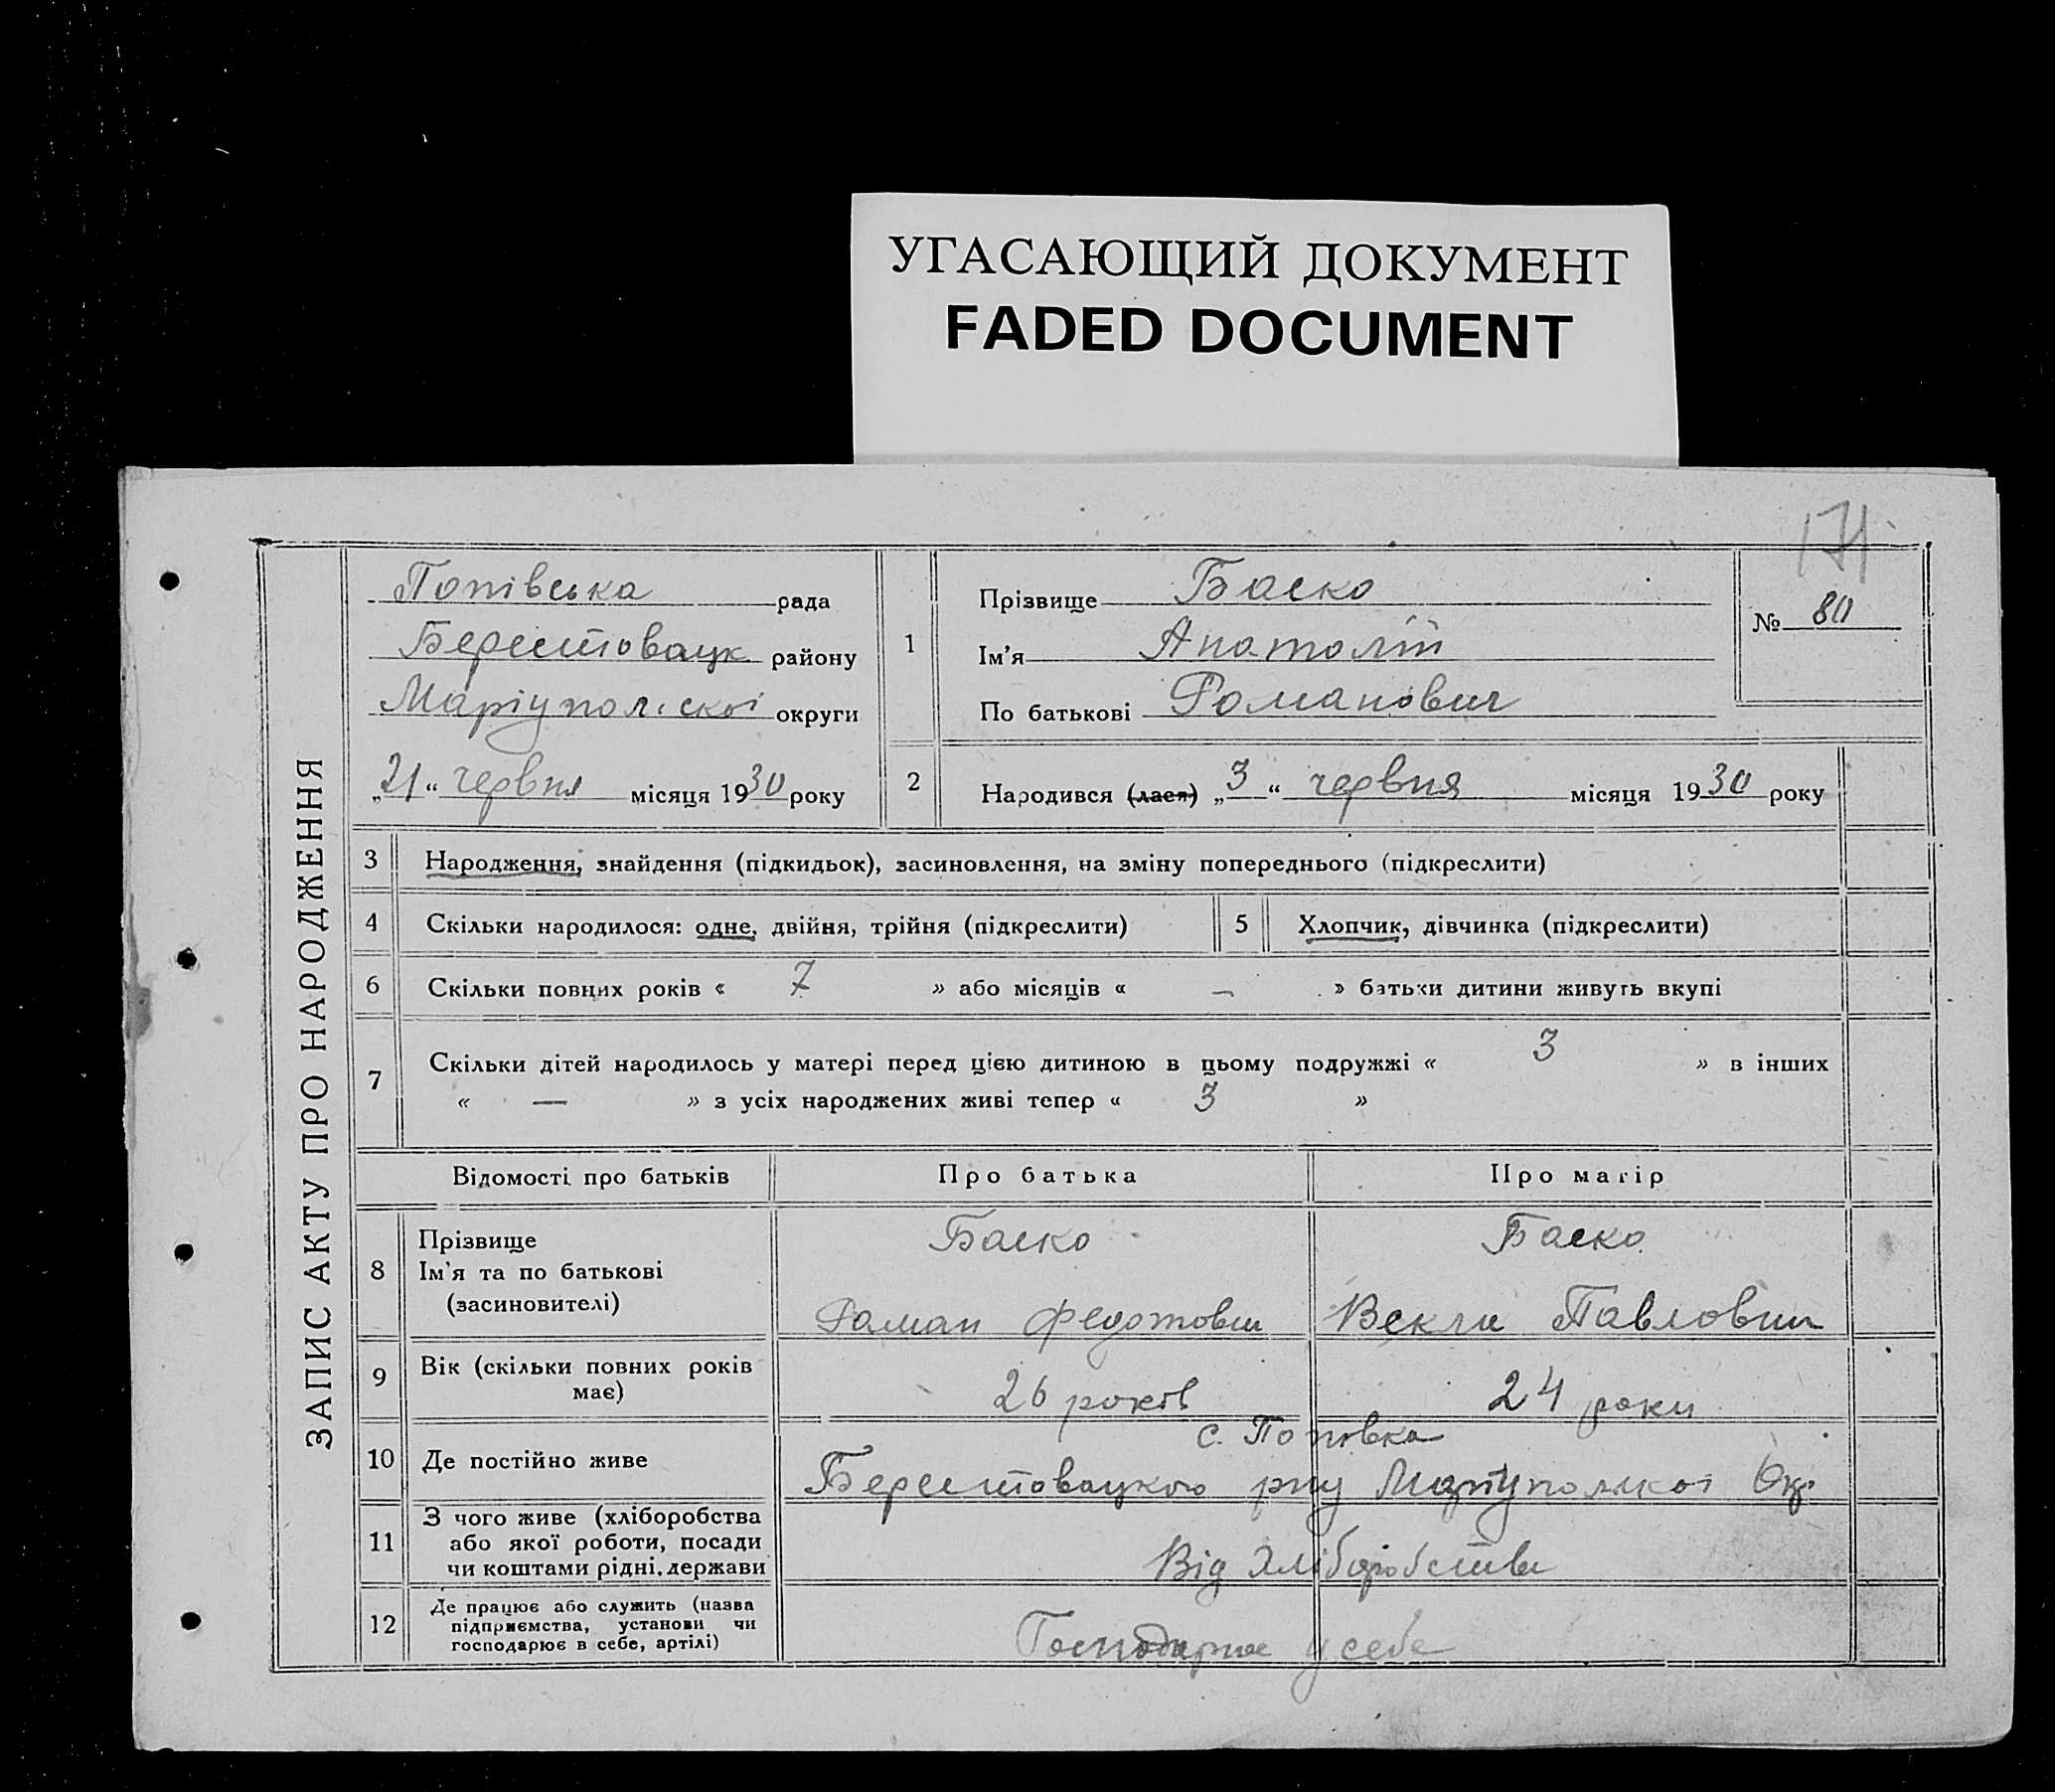 УГАСАЮЩИЙ ДОКУМЕНТ
FADED DOCUMENT
171
ЗАПИС АКТУ ПРО НАРОДЖЕННЯ
Попівська рада
Берестовацк району
Маріупол.скої округи
„21“ червня місяця 1930 року
1
Прізвище Баско
Ім'я Анатолій
По батькові Романович
№ 80
2 Народився (лася) „3“ червня місяця 1930 року
3 Народження, знайдення (підкидьок), засиновлення, на зміну попереднього (підкреслити)
4 Скільки народилося: одне, двійня, трійня (підкреслити) 5 Хлопчик, дівчинка (підкреслити)
6 Скільки повних років « 7 » або місяців « — » батьки дитини живуть вкупі
7 Скільки дітей народилось у матері перед цією дитиною в цьому подружжі « 3 » в інших
« — » з усіх народжених живі тепер « 3 »
Відомості про батьків Про батька Про матір
8 Прізвище Баско Баско
Ім'я та по батькові
(засиновителі) Роман Федотович Векли Павловни
9 Вік (скільки повних років
має) 26 років 24 роки
с. Поповка
10 Де постійно живе Берестовацкого рну Маріуполскої Окр.
11 З чого живе (хліборобства
або якої роботи, посади
чи коштами рідні, держави Від Хліборобства
12 Де працює або служить (назва
підприємства, установи чи
господарює в себе, артілі) Господарює у себе